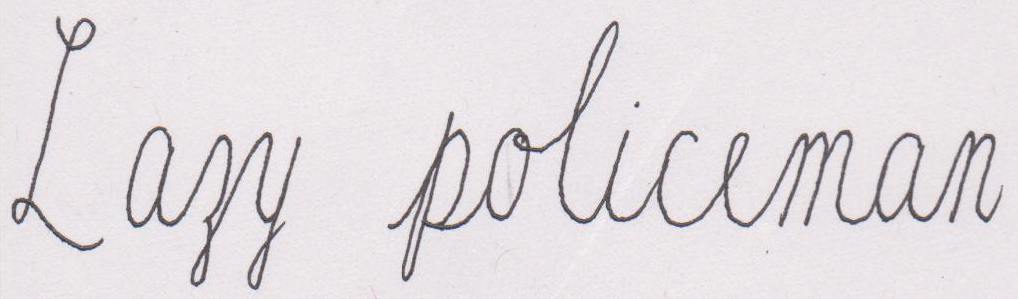 Lazy policeman